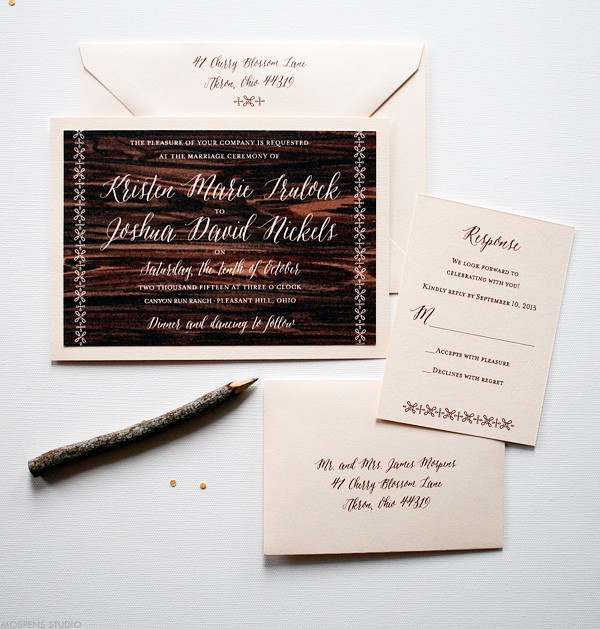 41 Cherry Blossom Lane
Akron, Ohio 44319
THE PLEASURE OF YOUR COMPANY IS REQUESTED
AT THE MARRIAGE CEREMONY OF
Kristen Marie Trulock
TO
Joshua David Nickels
ON
Saturday, the tenth of October
TWO THOUSAND FIFTEEN AT THREE O'CLOCK
CANYON RUN RANCH · PLEASANT HILL, OHIO
Dinner and dancing to follow
Response
WE LOOK FORWARD TO
CELEBRATING WITH YOU!
KINDLY REPLY BY SEPTEMBER 10, 2015
M
ACCEPTS WITH PLEASURE
DECLINES WITH REGRET
Mr. and Mrs. James Mospens
41 Cherry Blossom Lane
Akron, Ohio 44319
MOSPENS STUDIO